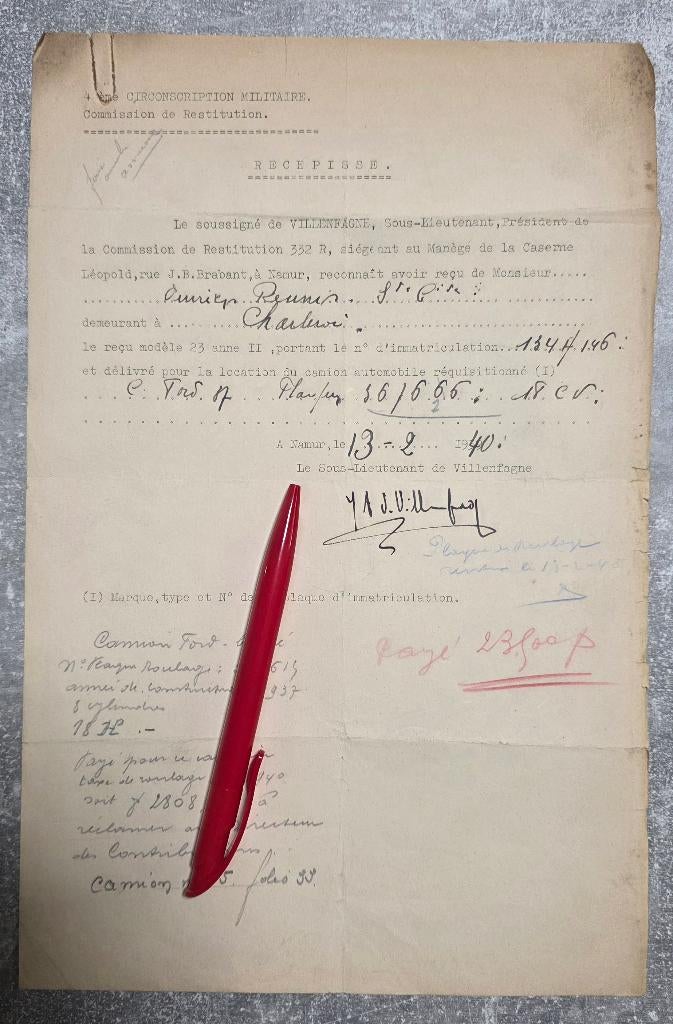 4 ème CIRCONSCRIPTION MILITAIRE.
Commission de Restitution.
RECEPISSE.
Le soussigné de VILLENFAGNE, Sous-Lieutenant,Président de
la Commission de Restitution 332 R, siégeant au Manège de la Caserne
Léopold,rue J.B.Brabant,à Namur, reconnaît avoir reçu de Monsieur.....
Ouvriers Reunis
demeurant à Charleroi.
le reçu modèle 23 anne II ,portant le n° d'immatriculation...134H/146
et délivré pour la location du camion automobile réquisitionné (I)
C. Ford 37 18 CV
A Namur,le 13-2 1940
Le Sous-Lieutenant de Villenfagne
Plaque de roulage
(I) Marque,type et N° de plaque d'immatriculation.
Payé 23.500 f
Camion Ford
N° Plaque roulage:
année de construction 937
8 cylindres
18
Payé pour ce
taxe de roulage
soit 2808 à
réclamer au directeur
des Contributions
Camion 5. folio 33.